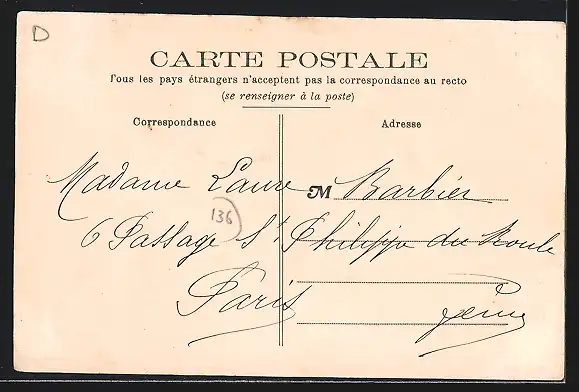 D
CARTE POSTALE
Tous les pays étrangers n'acceptent pas la correspondance au recto
(se renseigner à la poste)
Correspondance
Adresse
Madame Laure M Barbier
136
6 Passage St Philippe du Roule
Paris